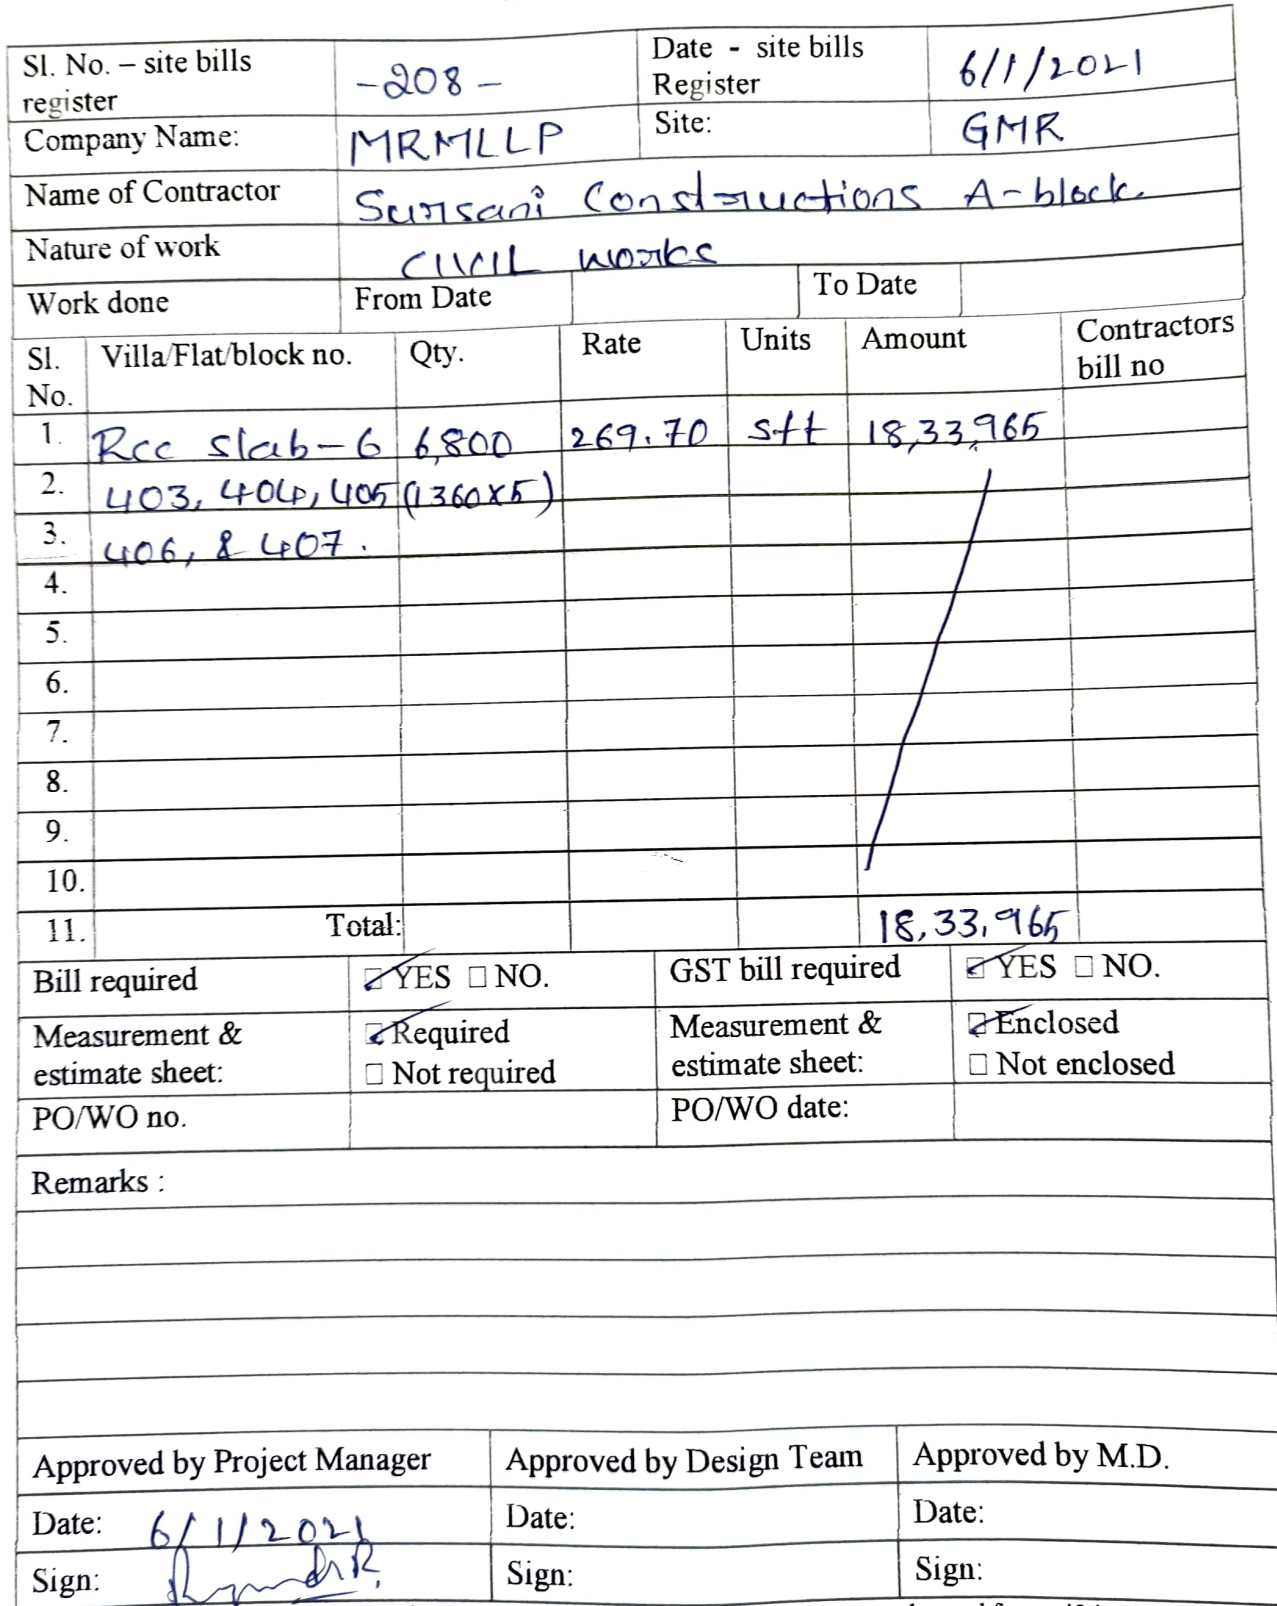 Sl. No. – site bills register -208- Date - site bills Register 6/1/2021
Company Name: MRMLLP Site: GMR
Name of Contractor Sursani Constructions A-block
Nature of work CIVIL works
Work done From Date To Date
Sl. No. Villa/Flat/block no. Qty. Rate Units Amount Contractors bill no
1. Rcc slab-6 6,800 269.70 sft 18,33,965
2. 403, 404, 405 (1360x5)
3. 406, & 407.
4.
5.
6.
7.
8.
9.
10.
11. Total: 18,33,965
Bill required ☑ YES ☐ NO. GST bill required ☑ YES ☐ NO.
Measurement & estimate sheet: ☑ Required ☐ Not required Measurement & estimate sheet: ☑ Enclosed ☐ Not enclosed
PO/WO no. PO/WO date:
Remarks :
Approved by Project Manager Approved by Design Team Approved by M.D.
Date: 6/1/2021 Date: Date:
Sign: Sign: Sign: